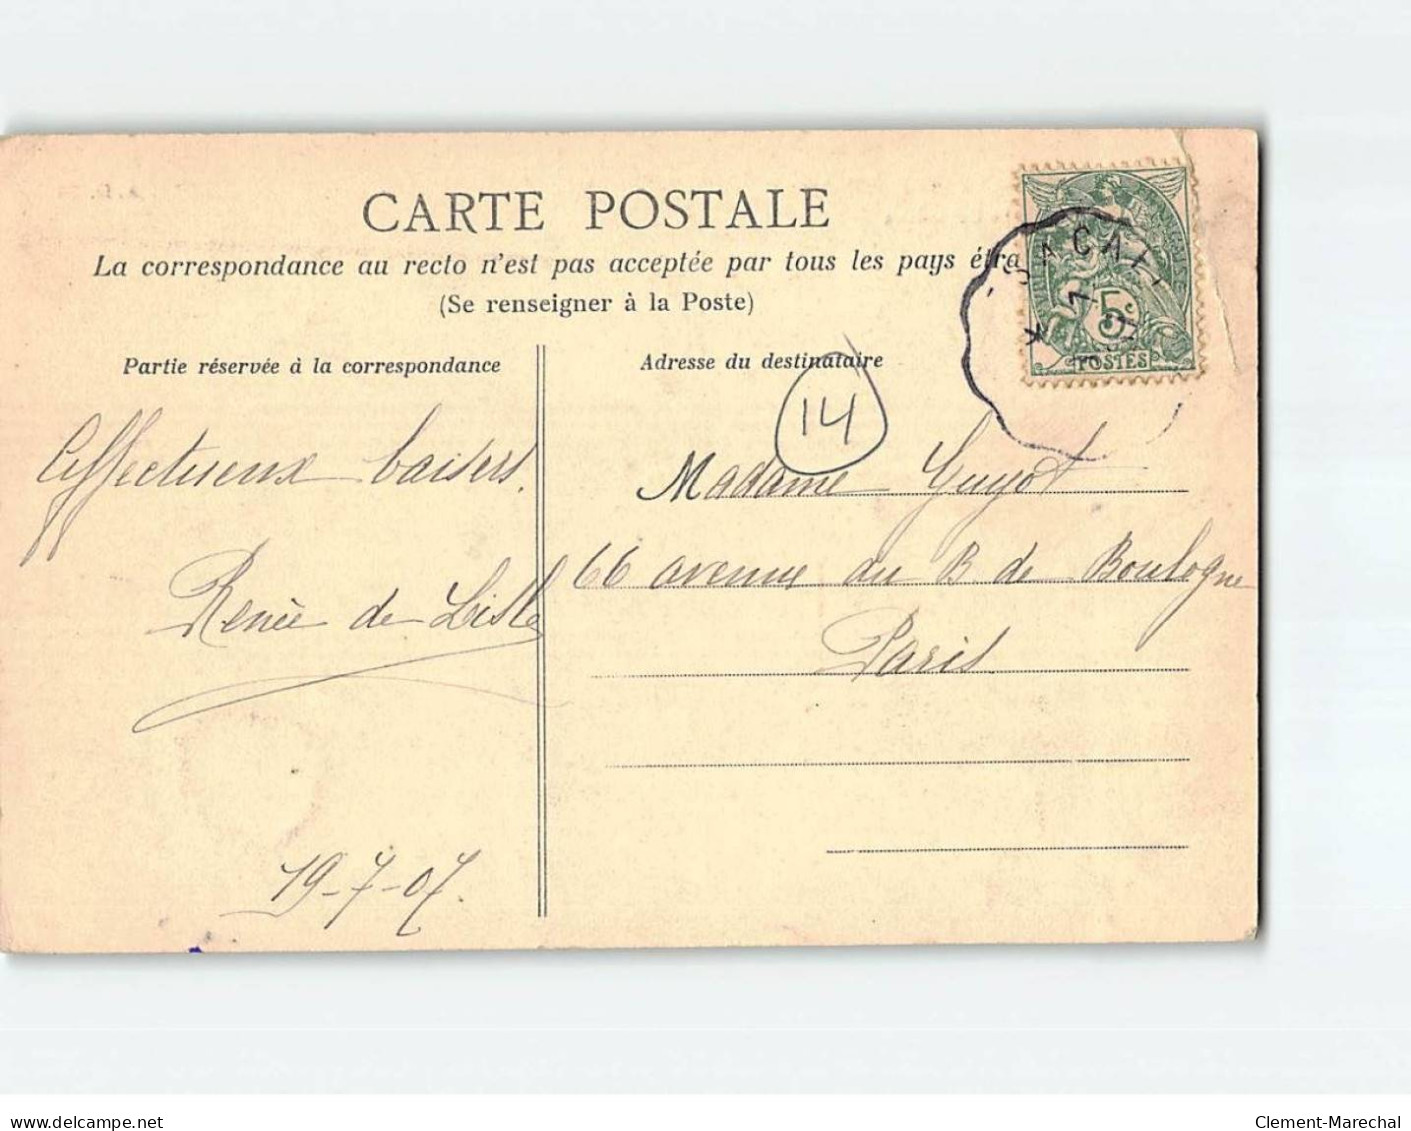 CARTE POSTALE
La correspondance au recto n'est pas acceptée par tous les pays étra
(Se renseigner à la Poste)
Partie réservée à la correspondance
Adresse du destinataire
14
Affectueux baisers.
Renée de Lisle
19-7-07.
Madame Guyot
66 avenue du B. de Boulogne
Paris
5c
POSTES
delcampe.net
Clement-Marechal